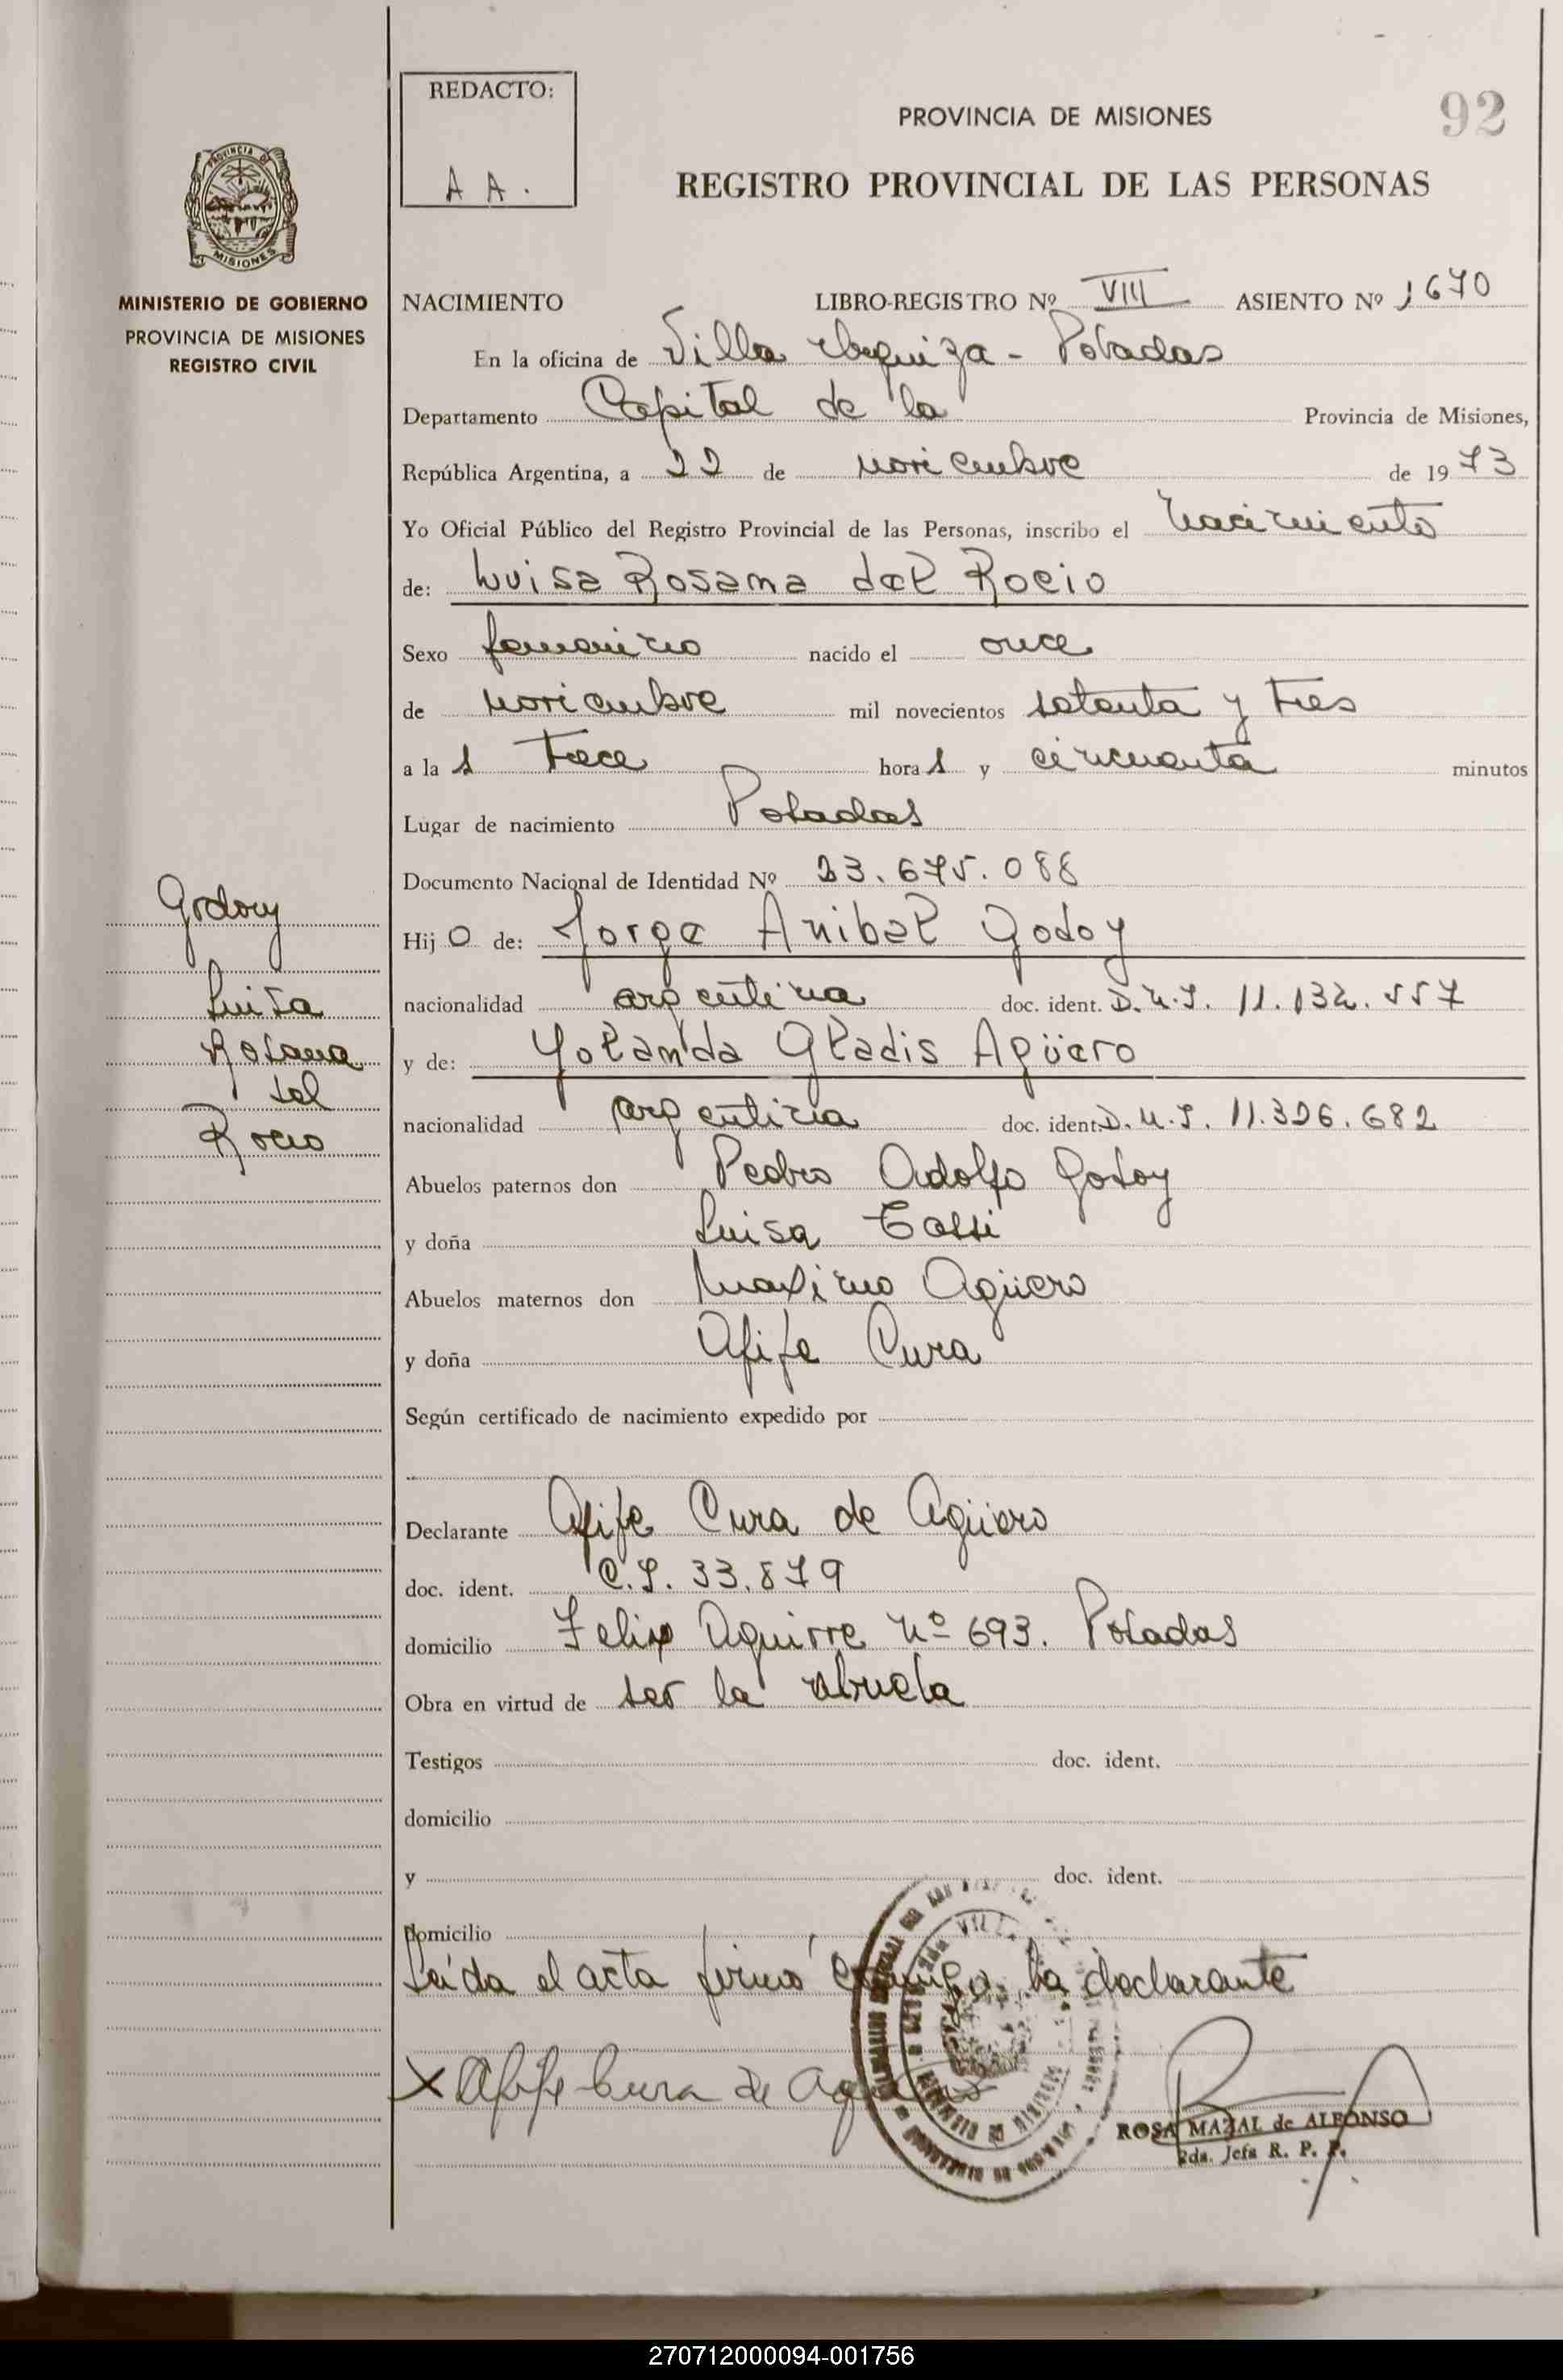 REDACTO:
A A.
PROVINCIA DE MISIONES
92
REGISTRO PROVINCIAL DE LAS PERSONAS
PROVINCIA DE
MISIONES
MINISTERIO DE GOBIERNO
PROVINCIA DE MISIONES
REGISTRO CIVIL
NACIMIENTO LIBRO-REGISTRO Nº VIII ASIENTO Nº 1670
En la oficina de Villa Urquiza - Posadas
Departamento Capital de la Provincia de Misiones,
República Argentina, a 22 de noviembre de 1973
Yo Oficial Público del Registro Provincial de las Personas, inscribo el nacimiento
de: Luisa Rosana del Rocio
Sexo femenino nacido el once
de noviembre mil novecientos setenta y tres
a las trece horas y cincuenta minutos
Lugar de nacimiento Posadas
Documento Nacional de Identidad Nº 23.675.088
Godoy
Luisa
Rosana
del
Rocio
Hijo de: Jorge Anibal Godoy
nacionalidad argentina doc. ident. D.N.I. 11.132.557
y de: Yolanda Gladis Agüero
nacionalidad argentina doc. ident. D.N.I. 11.326.682
Abuelos paternos don Pedro Adolfo Godoy
y doña Luisa
Abuelos maternos don Maximo Agüero
y doña Afife Cura
Según certificado de nacimiento expedido por
Declarante Afife Cura de Agüero
doc. ident. C.I. 33.879
domicilio Felix Aguirre Nº 693. Posadas
Obra en virtud de ser la abuela
Testigos doc. ident.
domicilio
y doc. ident.
domicilio
Leída el acta firmó conmigo, la declarante
X Afife Cura de Agüero
ROSA MAZAL de ALFONSO
2da. Jefa R. P. P.
270712000094-001756